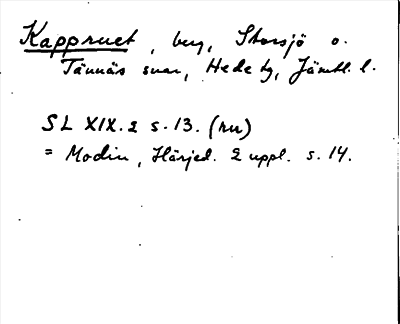 Kappruet, berg, Storsjö o.
Tännäs snar, Hede tg, Jämtl. l.
SL XIX.2 s.13. (nu)
= Modin, Härjed. 2 uppl. s. 14.